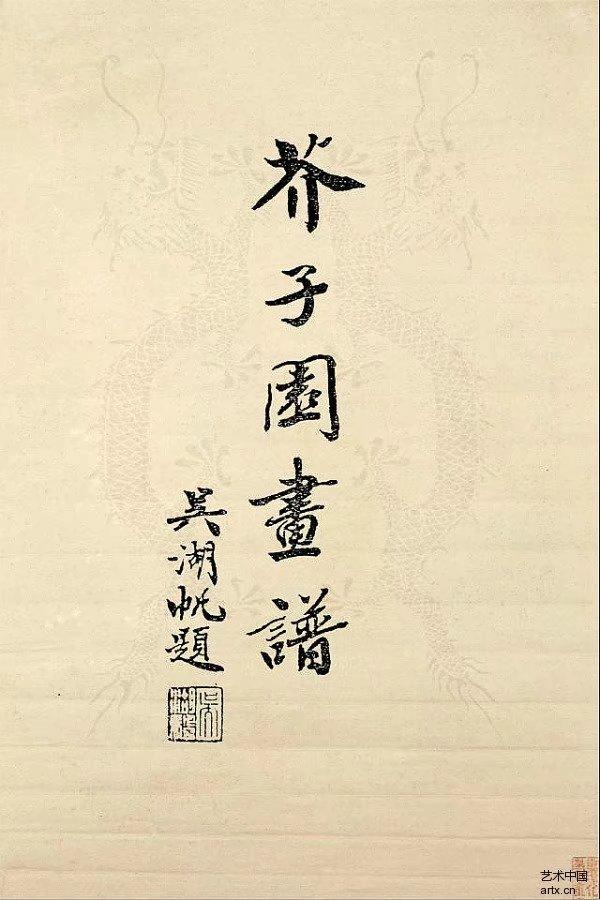 芥子園畫譜
吳湖帆題
艺术中国
artx.cn